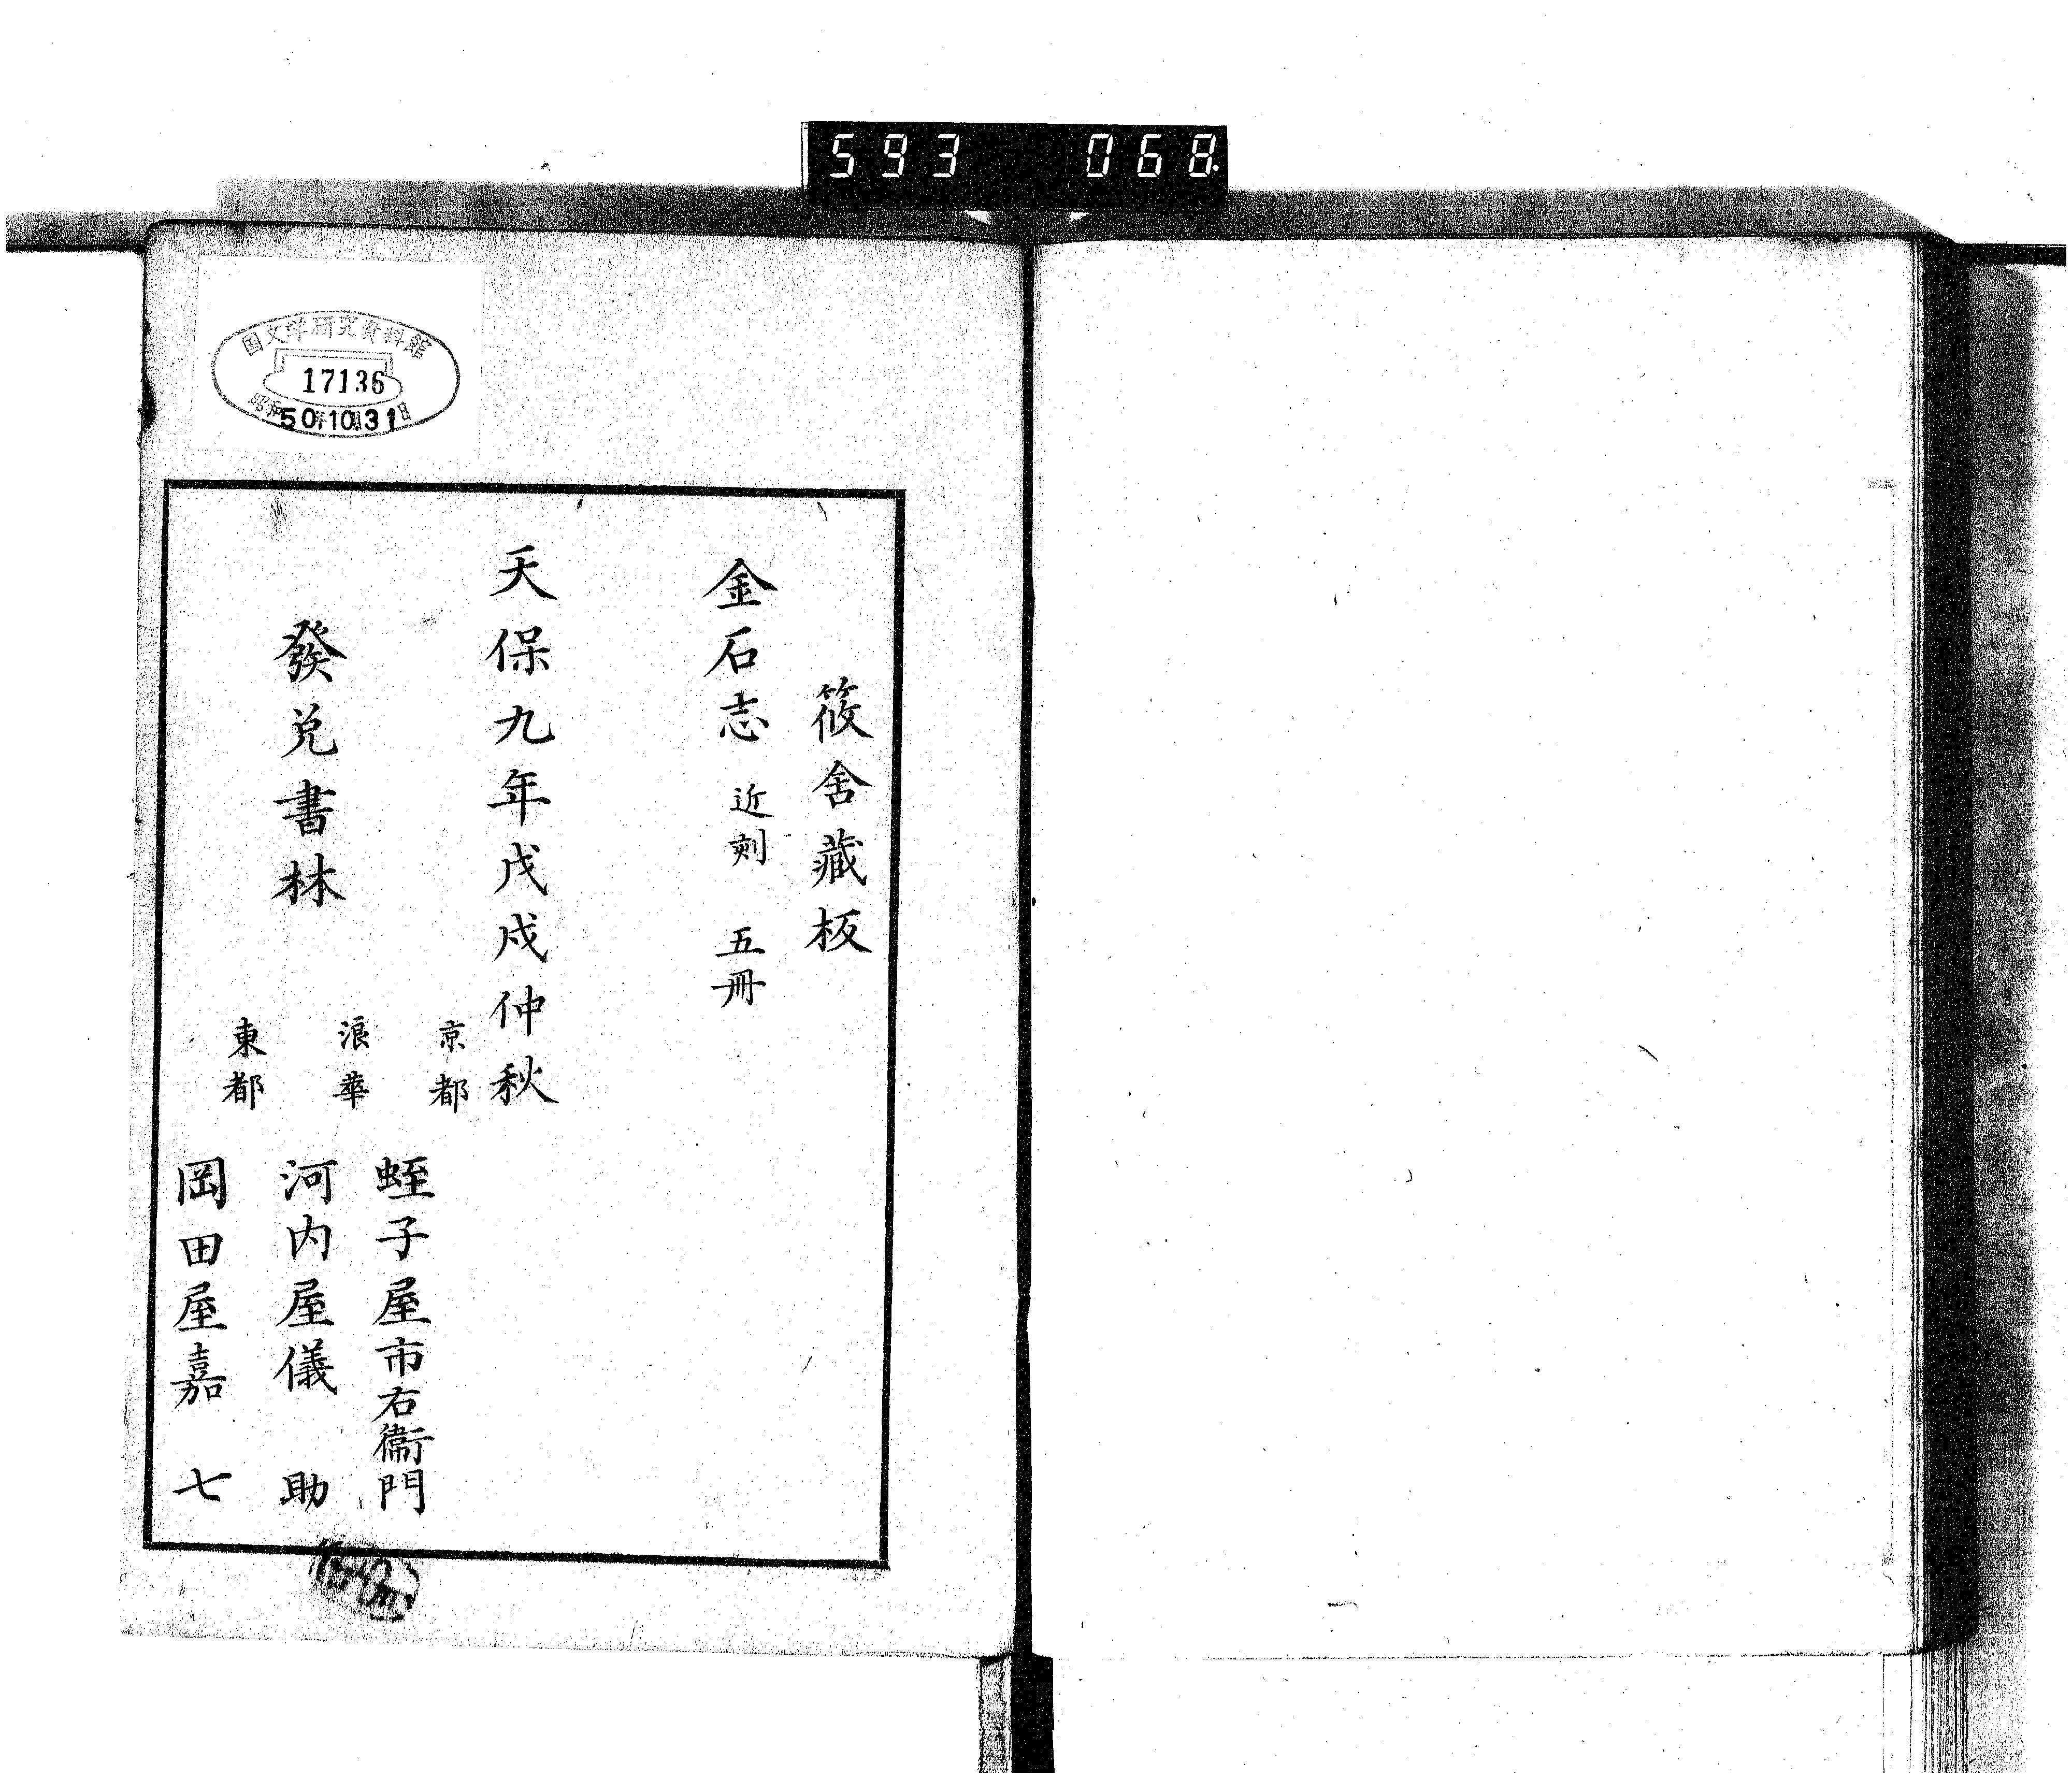 593 068
国文学研究資料館
17136
昭和50年10月31日
筱舍藏板
金石志 近刻 五冊
天保九年戊戌仲秋
發兌書林
京都 蛭子屋市右衞門
浪華 河内屋儀助
東都 岡田屋嘉七